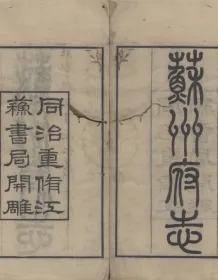 蘇州府志
同治重修江
蘇書局開雕